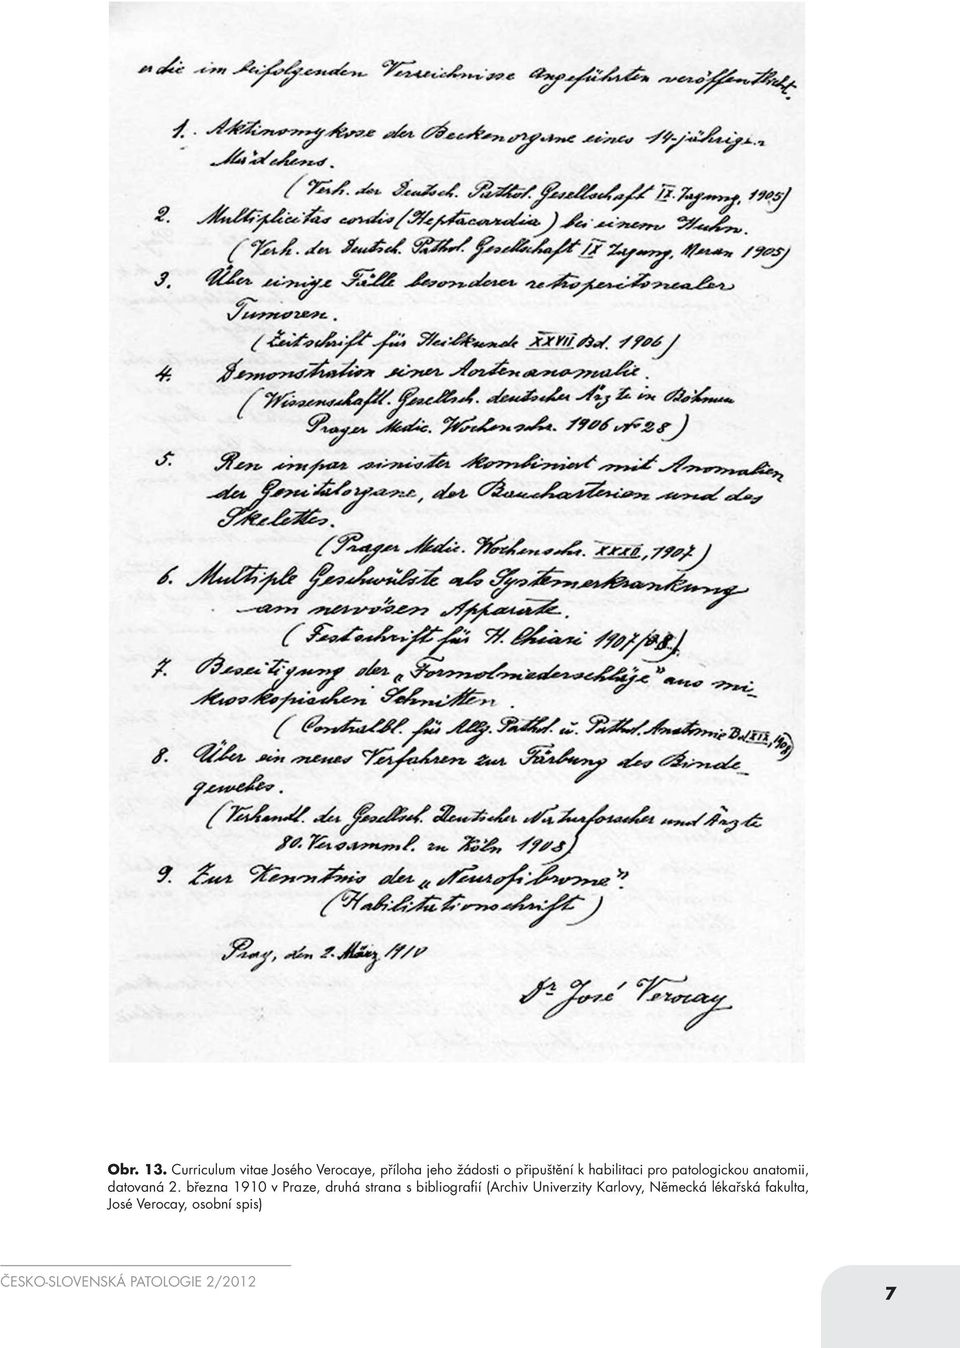 er die im beifolgenden Verzeichnisse Angeführten veröffentlicht.
1. Aktinomykose der Beckenorgane eines 14-jährigen
Mädchens.
(Verh. der Deutsch. Pathol. Gesellschaft IX. Tagung, 1905)
2. Multiplicitas cordis (Heptacardia) bei einem Huhn.
(Verh. der Deutsch. Pathol. Gesellschaft IX Tagung, Meran 1905)
3. Über einige Fälle besonderer retroperitonealer
Tumoren.
(Zeitschrift für Heilkunde XXVII Bd. 1906)
4. Demonstration einer Aortenanomalie.
(Wissenschaftl. Gesellsch. deutscher Ärzte in Böhmen
Prager Medic. Wochenschr. 1906 No 28)
5. Ren impar sinister kombiniert mit Anomalien
der Genitalorgane, der Baucharterien und des
Skelettes.
(Prager Medic. Wochenschr. XXXII, 1907)
6. Multiple Geschwülste als Systemerkrankung
am nervösen Apparate.
(Festschrift für H. Chiari 1907/08).
7. Beseitigung der „Formolniederschläge" aus mi-
kroskopischen Schnitten.
(Centralbl. für Allg. Pathol. u. Pathol. Anatomie Bd. XIX, 1908)
8. Über ein neues Verfahren zur Färbung des Binde-
gewebes.
(Verhandl. der Gesellsch. Deutscher Naturforscher und Ärzte
80. Versamml. zu Köln 1908)
9. Zur Kenntnis der „Neurofibrome".
(Habilitationsschrift)
Prag, den 2. März 1910
Dr José Verocay
Obr. 13. Curriculum vitae Josého Verocaye, příloha jeho žádosti o připuštění k habilitaci pro patologickou anatomii,
datovaná 2. března 1910 v Praze, druhá strana s bibliografií (Archiv Univerzity Karlovy, Německá lékařská fakulta,
José Verocay, osobní spis)
ČESKO-SLOVENSKÁ PATOLOGIE 2/2012
7